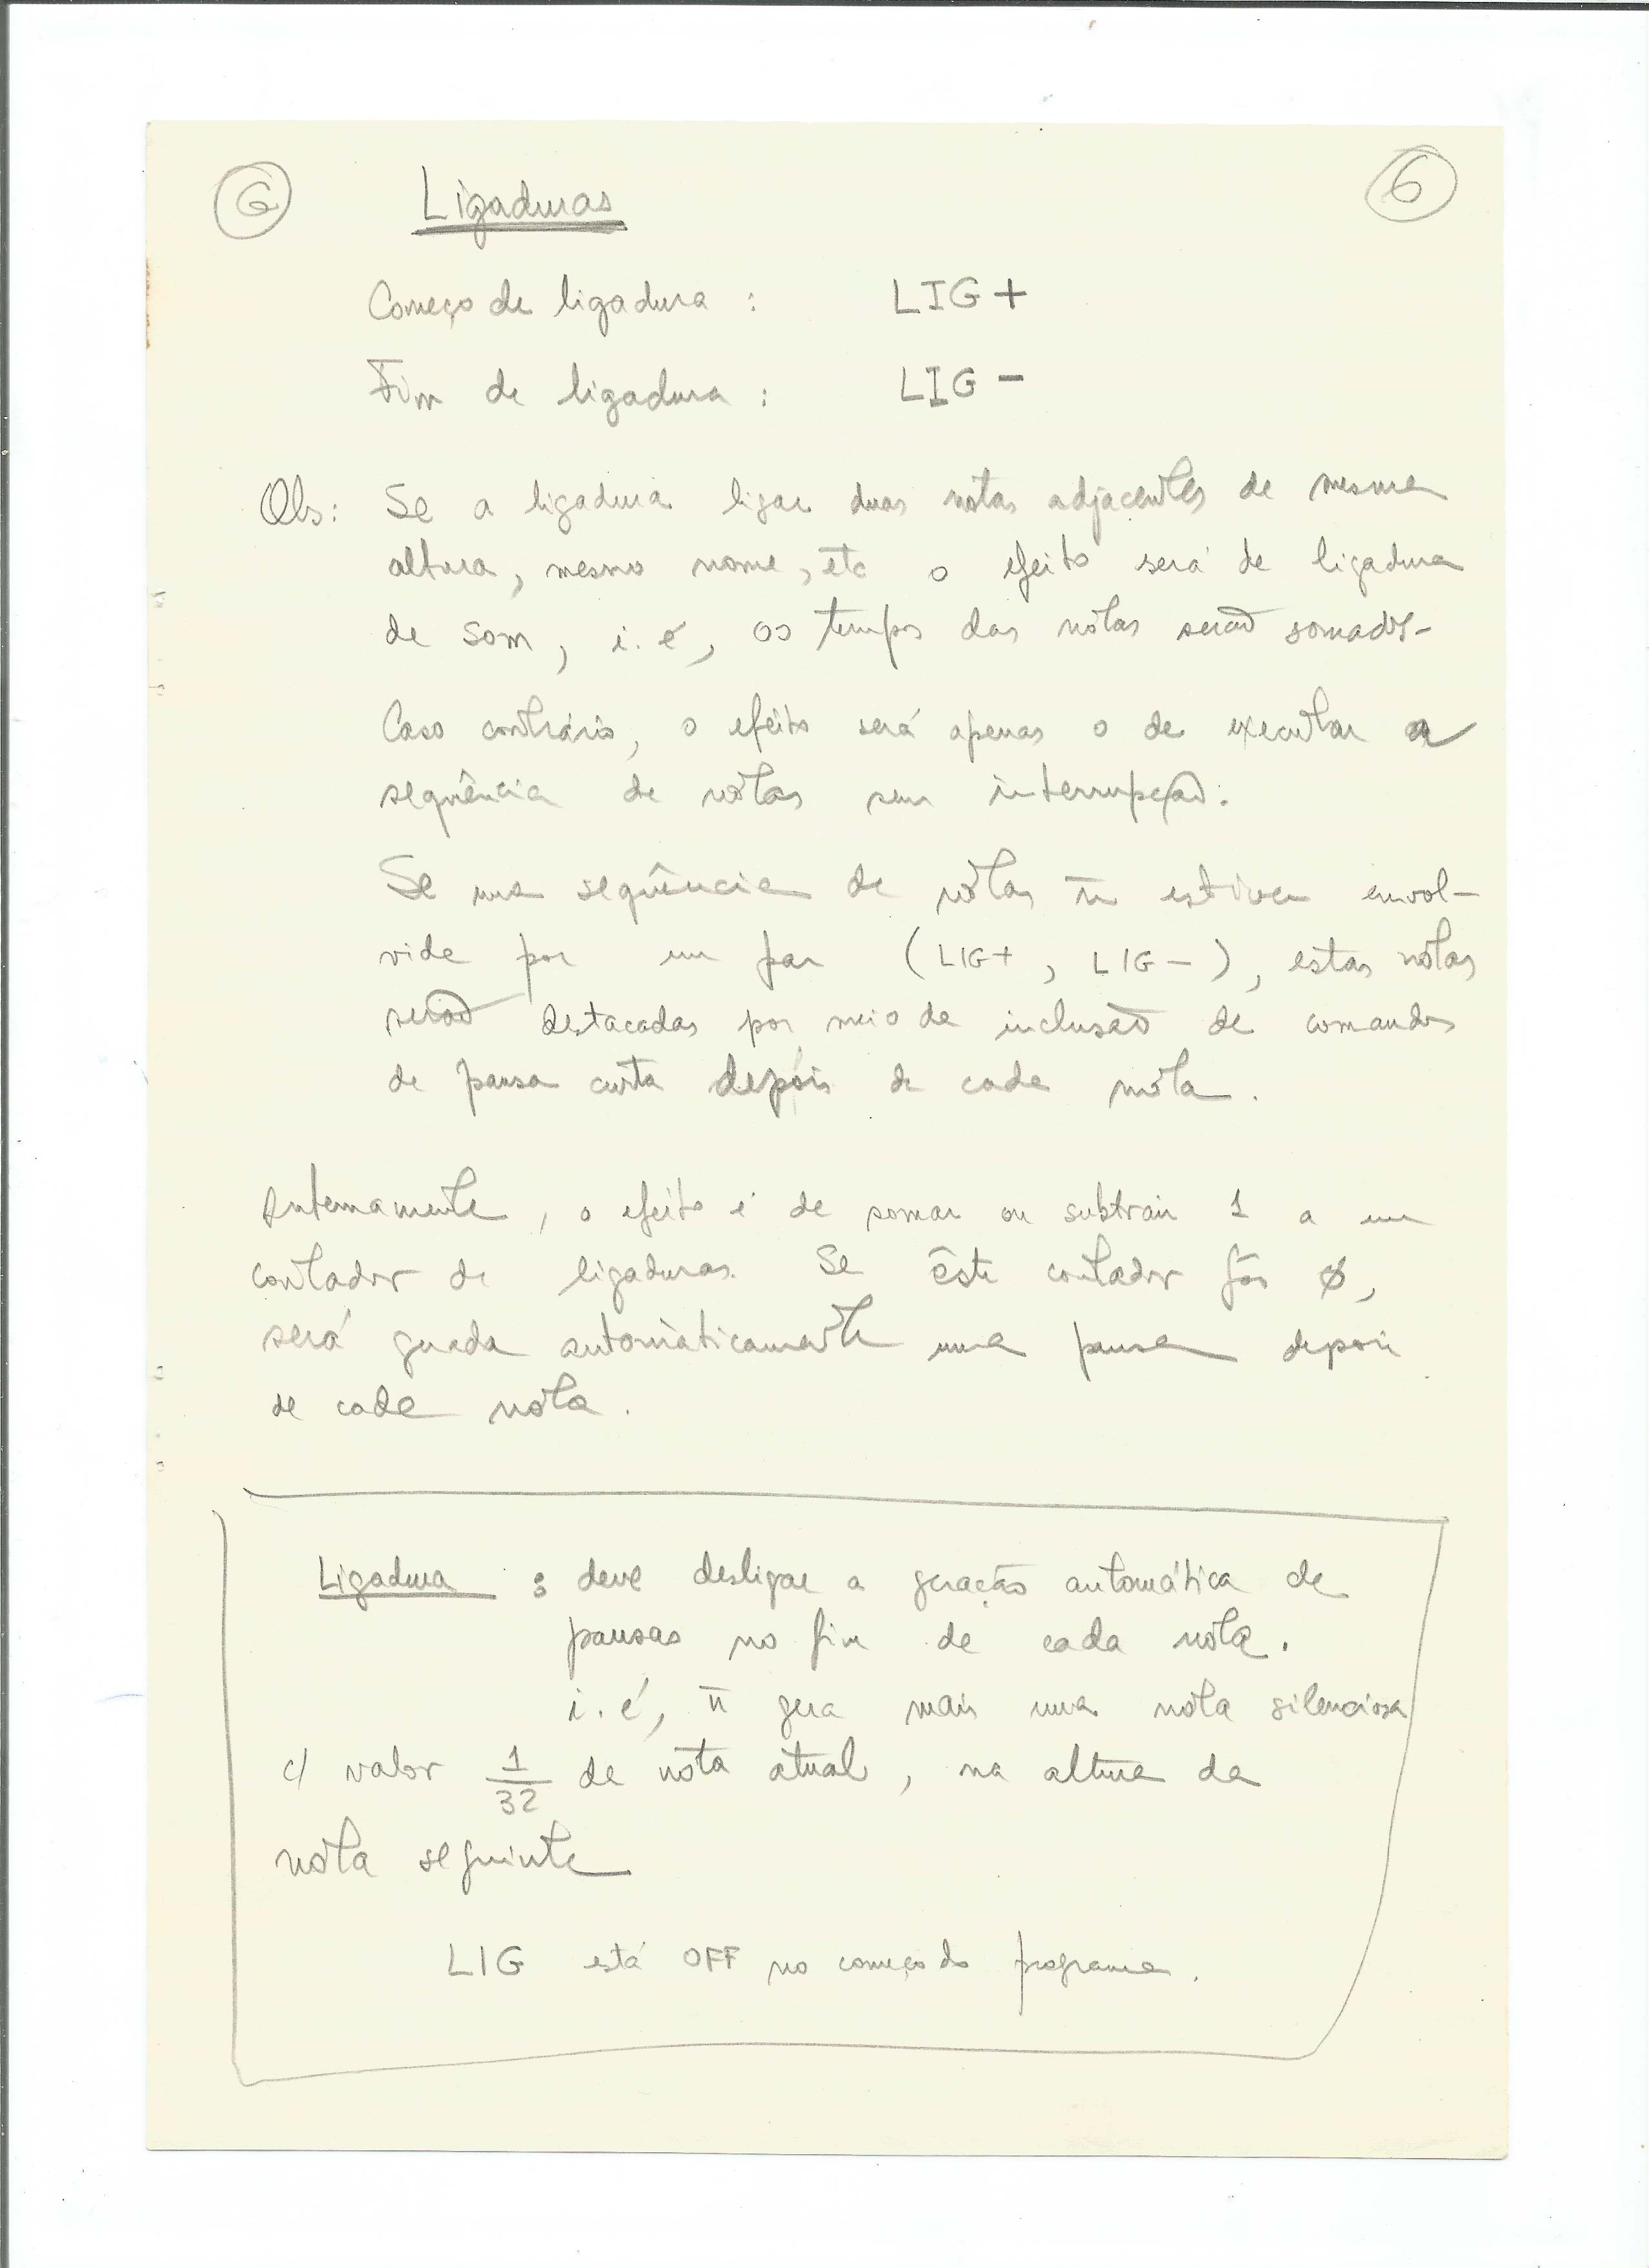 6 Ligaduras 6
Começo de ligadura : LIG+
Fim de ligadura : LIG-
Obs: Se a ligadura ligar duas notas adjacentes de mesma
altura, mesmo nome, etc o efeito será de ligadura
de som, i.é, os tempos das nótas serão somados.
Caso contrário, o efeito será apenas o de executar a
seqüência de nótas sem interrupção.
Se uma seqüência de nótas ñ estiver envol-
vida por um par (LIG+, LIG-), estas nótas
serão destacadas por meio da inclusão de comandos
de pausa curta depois de cada nóta.
Internamente, o efeito é de somar ou subtrair 1 a um
contador de ligaduras. Se êste contador fôr Ø,
será gerada automàticamente uma pausa depois
de cada nóta.
Ligadura : deve desligar a geração automática de
pausas no fim de cada nóta.
i.é, ñ gera mais uma nóta silenciosa
c/ valor 1/32 da nóta atual, na altura da
nóta seguinte
LIG está OFF no começo do programa.